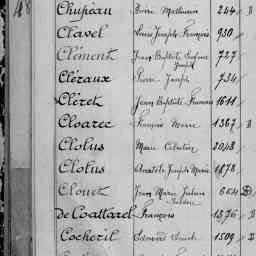 48
Chupeau Pierre Mathurin 244 D
Clavel Louis Joseph François 930
Clément Jean Baptiste Joseph 727
Clézaux Pierre Joseph 734
Cléret Jean Baptiste François 1611
Cloarec François Marie 1367 D
Clotus Marie Célestin 2048
Clotus Anatole Joseph Marie 1878
Clouet Jean Marie Julien 604 D
De Coattarel François 1376 D
Cocheril Edmond 1509 D